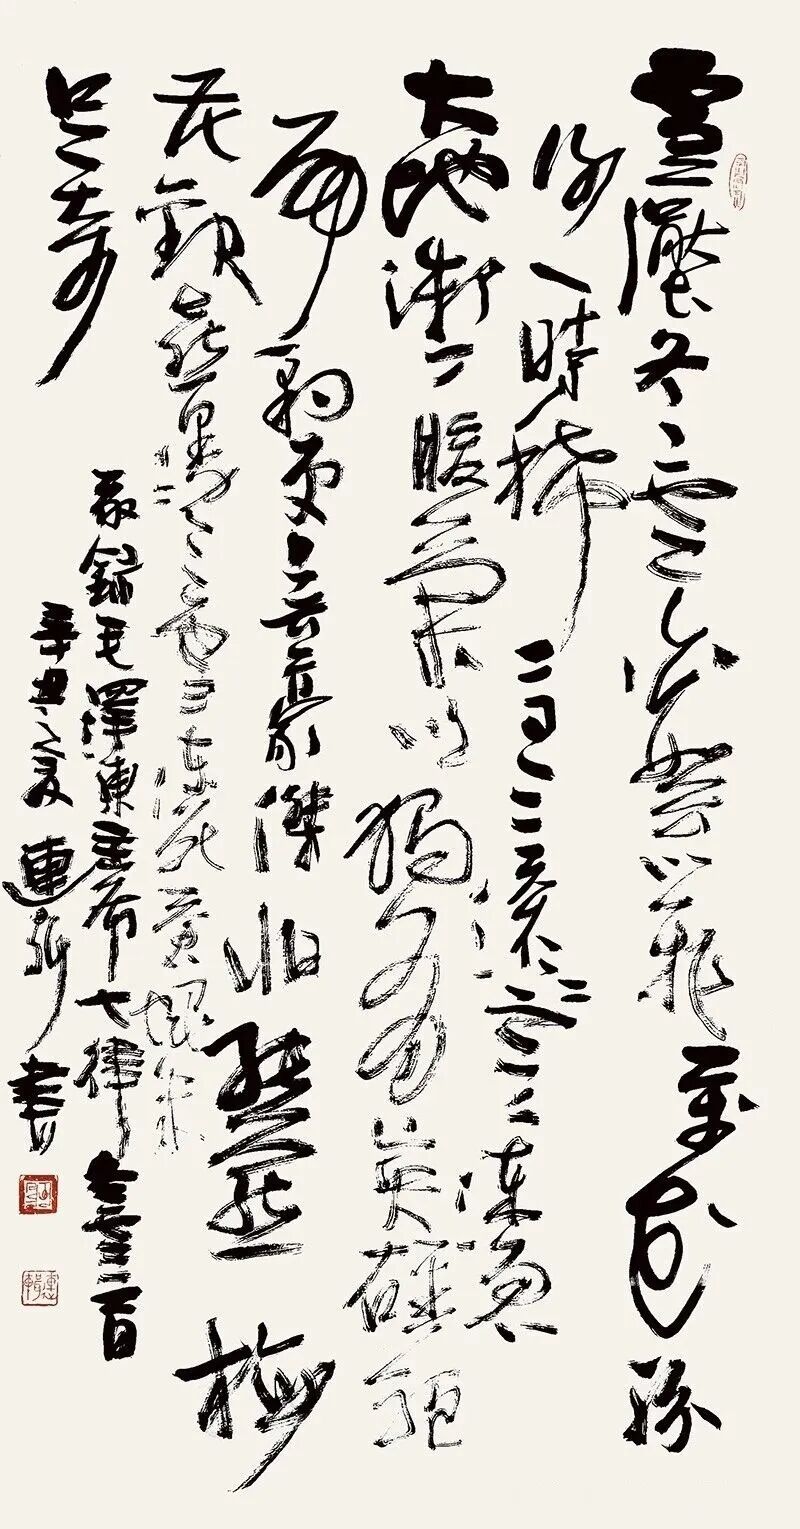 雪壓冬雲白絮飛萬花紛
謝一時稀高天滾滾寒流急
大地微微暖氣吹獨有英雄驅
虎豹更無豪傑怕熊羆梅
花歡喜漫天雪凍死蒼蠅未
足奇
敬錄毛澤東主席七律冬雲一首
辛丑之夏連輯書